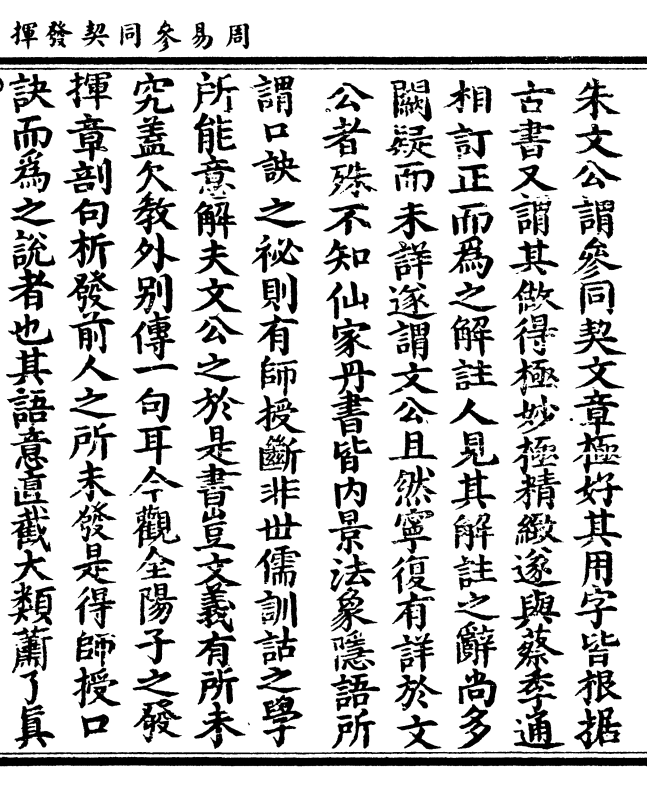 周易參同契發揮
朱文公謂參同契文章極好其用字皆根据
古書又謂其做得極妙極精緻遂與蔡季通
相訂正而爲之解註人見其解註之辭尚多
闕疑而未詳遂謂文公且然寧復有詳於文
公者殊不知仙家丹書皆内景法象隱語所
謂口訣之祕則有師授斷非世儒訓詁之學
所能意解夫文公之於是書豈文義有所未
究蓋欠教外别傳一句耳今觀全陽子之發
揮章剖句析發前人之所未發是得師授口
訣而爲之說者也其語意直截大類薊了眞